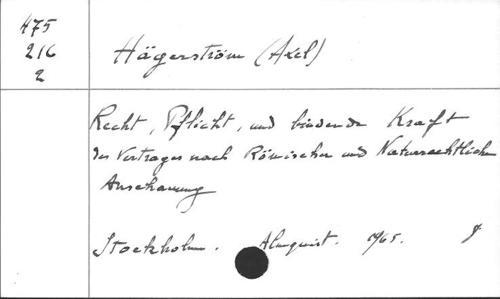 475
216
2
Hägerström (Axel)
Recht, Pflicht, und bindende Kraft
des Vertrages nach Römischer und Naturrechtlicher
Anschauung
Stockholm. Almquist. 1965.